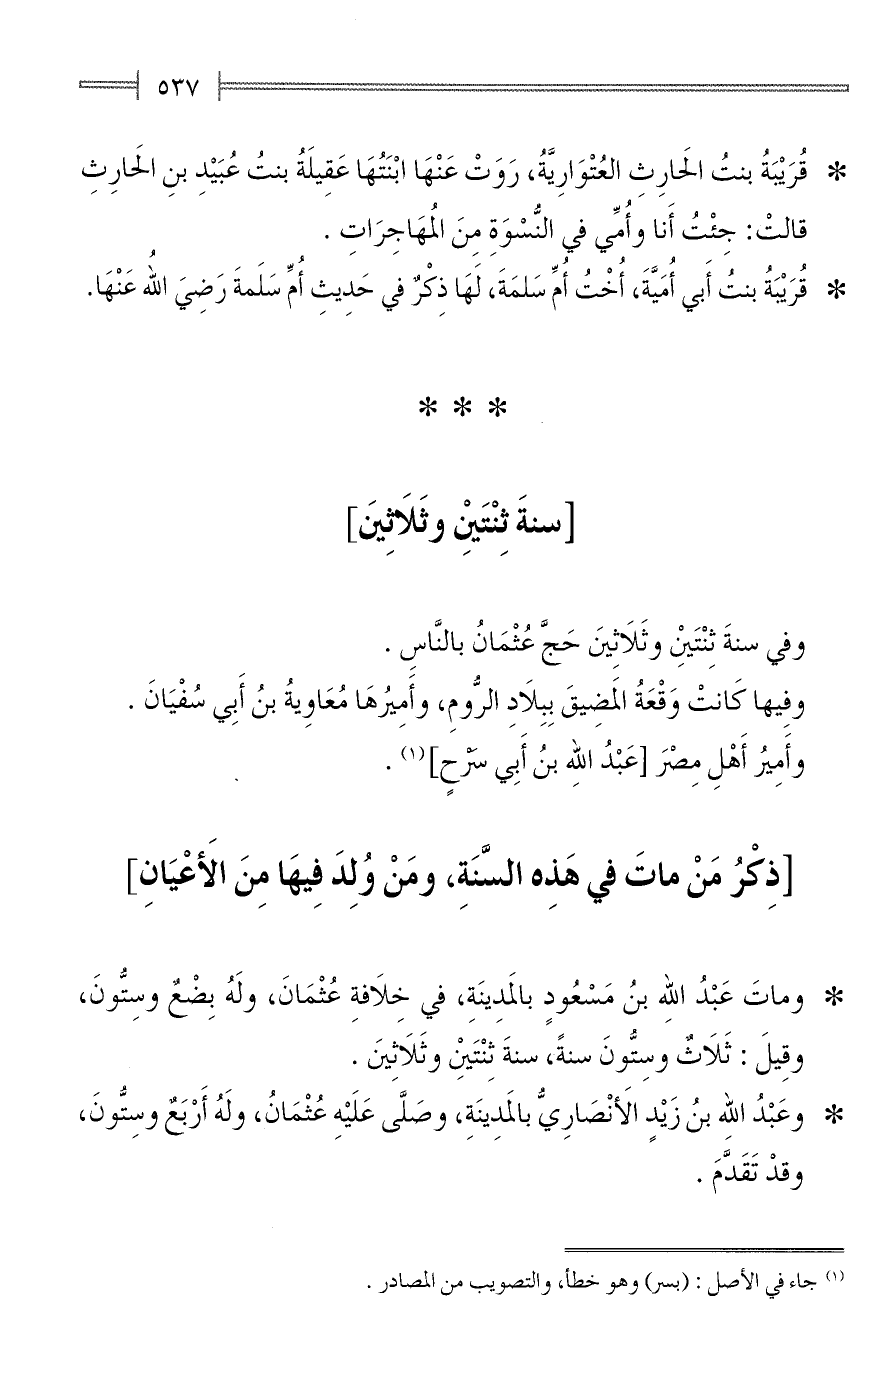 ٥٣٧
* قُرَيْبَةُ بنتُ الحَارِثِ العُتْوَارِيَّةُ، رَوَتْ عَنْهَا ابْنَتُهَا عَقِيلَةُ بنتُ عُبَيْدِ بنِ الحَارِثِ
قالتْ: جِئْتُ أَنا وأُمِّي في النُّسْوَةِ مِنَ المُهَاجِرَاتِ .
* قُرَيْبَةُ بنتُ أَبي أُمَيَّةَ، أُخْتُ أُمِّ سَلمَةَ، لَهَا ذِكْرٌ في حَدِيثِ أُمِّ سَلَمةَ رَضِيَ اللهُ عَنْهَا.
* * *
[سنةَ ثِنْتَينِْ وثَلَاثِينَ]
وفي سنةَ ثِنْتَينِْ وثَلَاثِينَ حَجَّ عُثْمَانُ بالنَّاسِ .
وفِيها كَانتْ وَقْعَةُ المَضِيقَ بِبِلَادِ الرُّومِ، وأَمِيرُهَا مُعَاوِيةُ بنُ أَبي سُفْيَانَ .
وأَمِيرُ أَهْلِ مِصْرَ [عَبْدُ اللهِ بنُ أَبي سَرْحٍ](١) .
[ذِكْرُ مَنْ ماتَ في هَذِه السَّنَةِ، ومَنْ وُلِدَ فِيهَا مِنَ الأَعْيَانِ]
* وماتَ عَبْدُ اللهِ بنُ مَسْعُودٍ بالمَدِينَةِ، في خِلَافةِ عُثْمَانَ، ولَهُ بِضْعٌ وسِتُّونَ،
وقِيلَ : ثَلَاثٌ وسِتُّونَ سنةً، سنةَ ثِنْتَينِْ وثَلَاثِينَ .
* وعَبْدُ اللهِ بنُ زَيْدٍ الأَنْصَارِيُّ بالمَدِينَةِ، وصَلَّى عَلَيْهِ عُثْمَانُ، ولَهُ أَرْبَعٌ وسِتُّونَ،
وقدْ تَقَدَّمَ .
(١) جاء في الأصل : (بسر) وهو خطأ، والتصويب من المصادر .